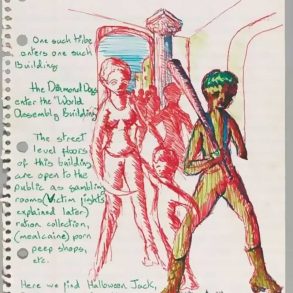 One such tribe
enters one such
Building.
The Diamond Dogs
enter the World
Assembly Building
The street
level floors
of this building
are open to the
public as gambling
rooms (Victim fights
explained later)
ration collection,
(mealcaine) porn
peep shops,
etc.
Here we find Halloween Jack,